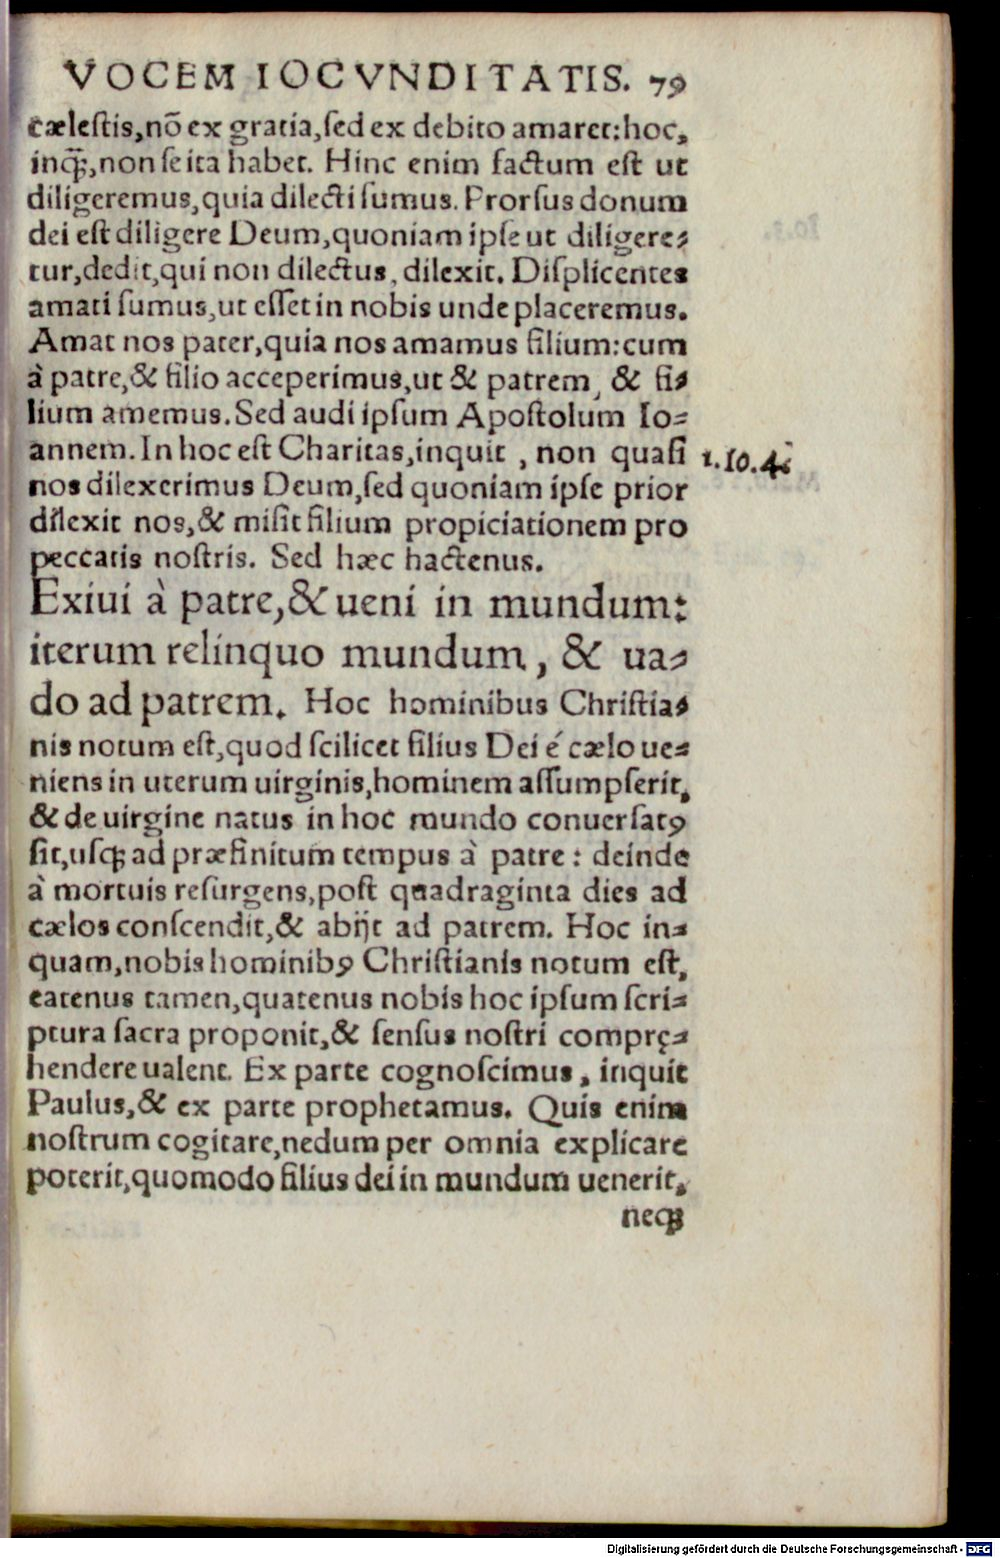 VOCEM IOCVNDITATIS. 79
cælestis,nō ex gratia,sed ex debito amaret:hoc,
inqȝ̃,non se ita habet. Hinc enim factum est ut
diligeremus,quia dilecti sumus. Prorsus donum
dei est diligere Deum,quoniam ipse ut diligere-
tur,dedit,qui non dilectus, dilexit. Displicentes
amati sumus,ut esset in nobis unde placeremus.
Amat nos pater,quia nos amamus filium:cum
à patre,& filio acceperimus,ut & patrem, & fi-
lium amemus. Sed audi ipsum Apostolum Io-
annem. In hoc est Charitas,inquit , non quasi
1.Io.4.
nos dilexerimus Deum,sed quoniam ipse prior
dilexit nos,& misit filium propiciationem pro
peccatis nostris. Sed hæc hactenus.
Exiui à patre,& ueni in mundum:
iterum relinquo mundum, & ua-
do ad patrem. Hoc hominibus Christia-
nis notum est,quod scilicet filius Dei é cælo ue-
niens in uterum uirginis,hominem assumpserit,
& de uirgine natus in hoc mundo conuersatꝯ
sit,usqȝ ad præfinitum tempus à patre : deinde
à mortuis resurgens,post quadraginta dies ad
cælos conscendit,& abijt ad patrem. Hoc in-
quam,nobis hominibꝯ Christianis notum est,
eatenus tamen,quatenus nobis hoc ipsum scri-
ptura sacra proponit,& sensus nostri comprę-
hendere ualent. Ex parte cognoscimus, inquit
Paulus,& ex parte prophetamus. Quis enim
nostrum cogitare,nedum per omnia explicare
poterit,quomodo filius dei in mundum uenerit,
neqȝ
Digitalisierung gefördert durch die Deutsche Forschungsgemeinschaft - DFG